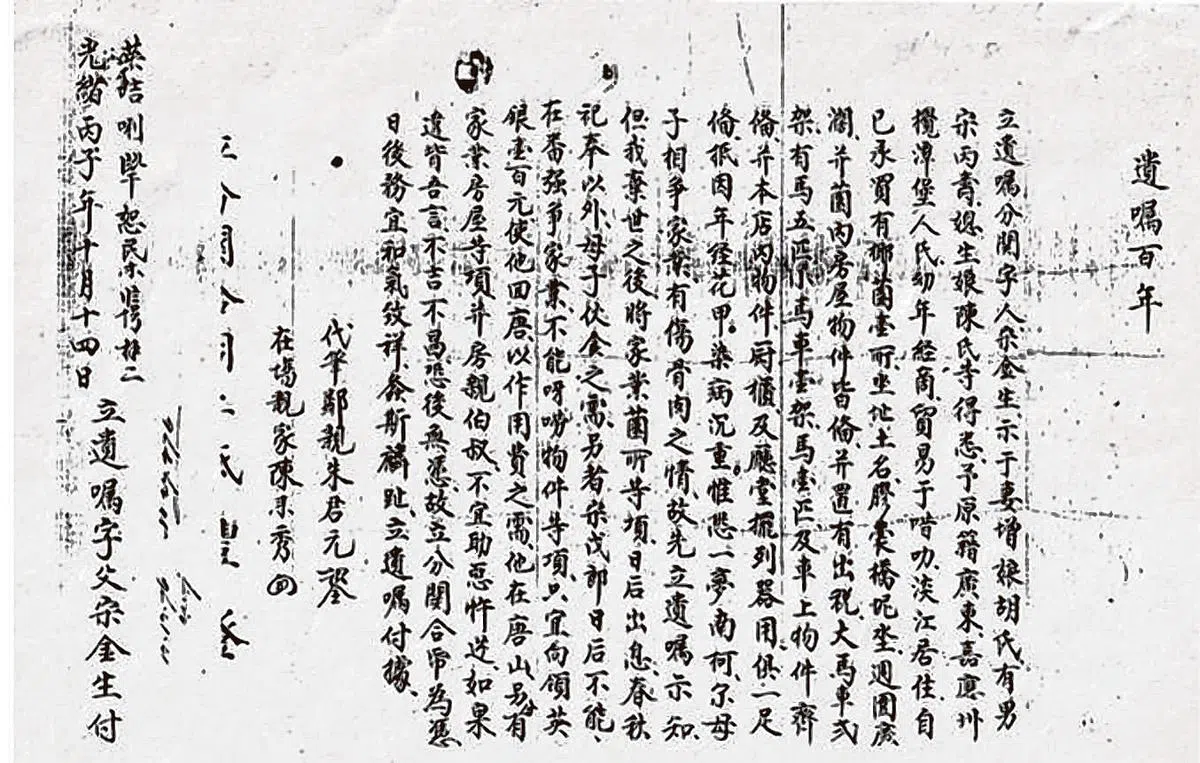 遺囑百年
立遺囑分関字人宋金生示于妻增娘胡氏有男
宋丙書媳生娘陳氏等得悉予原籍廣東嘉應州
潭堡人氏幼年經商貿易于喈叻淡江居住自
已承買有椰薗壹所坐址土名膠裳橋呢坐週圍廣
濶并薗內房屋物件皆俻并置有出稅大馬車弍
架有馬五匹小馬車壹架馬壹匹及車上物件齊
俻并本店內物件厨櫃及廳堂擺列器用俱一足
俻抵因年經花甲染病沉重惟恐一夢南柯尔母
子相爭家業有傷骨肉之情故先立遺囑示知
但我棄世之後將家業薗所等項日后出息春秋
祀奉以外母子伙食之需另者宋戊郎日后不能
在番強爭家業不能呀嘮物件等項只宜向領英
銀壹百元使他回唐以作用費之需他在唐山另有
家業房屋等項并房親伯叔不宜助惡忤逆如果
違背吾言不吉不昌恐後無憑故立分関合帋為憑
日後務宜和氣致祥螽斯麟趾立遺囑付據
代筆鄰親朱君元
在塲親家陳采秀
光緒丙子年十月十四日 立遺囑字父宋金生付